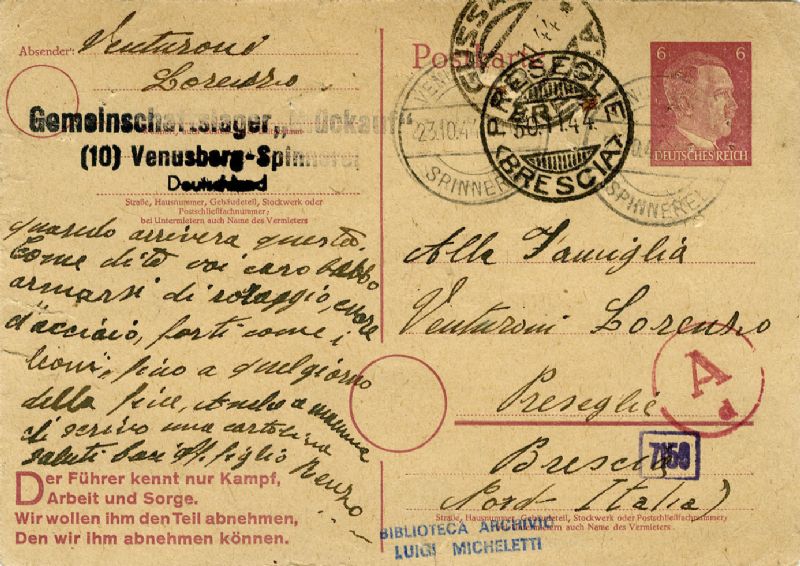 Absender: Venturoni
Lorenzo
Gemeinschaftslager „Glückauf“
(10) Venusberg-Spinnerei
Deutschland
Straße, Hausnummer, Gebäudeteil, Stockwerk oder
Postschließfachnummer;
bei Untermietern auch Name des Vermieters
quando arrivera questa.
Come dite voi caro babbo
armarsi di coraggio, cuore
d'acciaio, forti come i
leoni, fino a quel giorno
della fine, Anche a mamma
scrivo una cartolina
saluti baci figlio Renzo
Der Führer kennt nur Kampf,
Arbeit und Sorge.
Wir wollen ihm den Teil abnehmen,
Den wir ihm abnehmen können.
Postkarte
44
6 6
DEUTSCHES REICH
23.10.44
SPINNEREI
PRESEGLIE
30.11.44
(BRESCIA)
SPINNEREI
Alla Famiglia
Venturoni Lorenzo
Preseglie
A
d
7159
Brescia
Nord Italia)
Straße, Hausnummer, Gebäudeteil, Stockwerk oder Postschließfachnummer;
bei Untermietern auch Name des Vermieters
BIBLIOTECA ARCHIVIO
LUIGI MICHELETTI